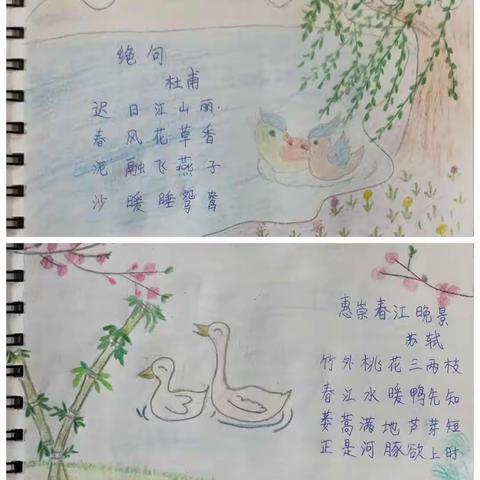 绝句
杜甫
迟日江山丽.
春风花草香
泥融飞燕子
沙暖睡鸳鸯
惠崇春江晚景
苏轼
竹外桃花三两枝
春江水暖鸭先知
蒌蒿满地芦芽短
正是河豚欲上时